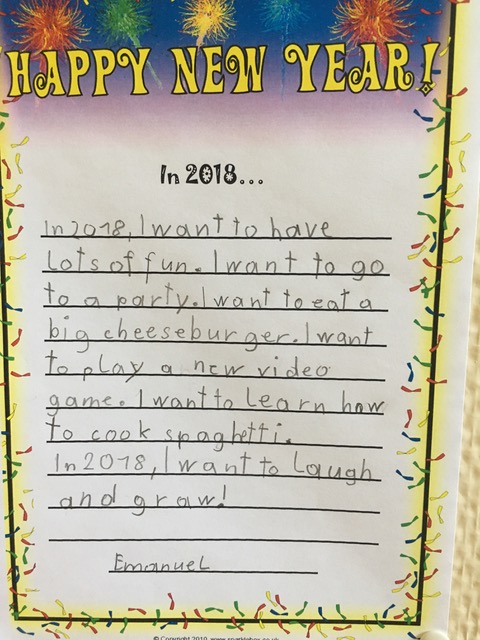 HAPPY NEW YEAR!
In 2018...
In 2018, I want to have
lots of fun. I want to go
to a party. I want to eat a
big cheeseburger. I want
to play a new video
game. I want to learn how
to cook spaghetti.
In 2018, I want to laugh
and graw!
Emanuel
© Copyright 2010 www.sparklebox.co.uk